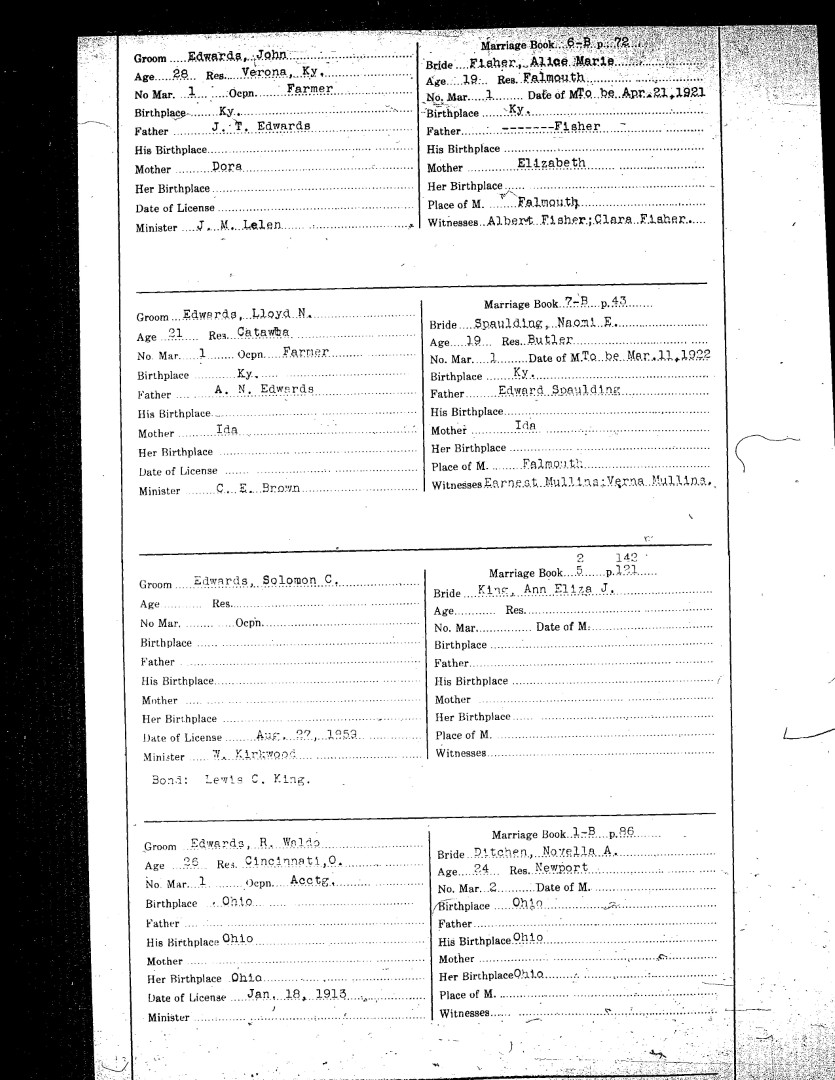 Groom Edwards, John
Age 28 Res. Verona, Ky.
No Mar. 1 Ocpn. Farmer
Birthplace Ky.
Father J. T. Edwards
His Birthplace
Mother Dora
Her Birthplace
Date of License
Minister J. M. Lelen
Marriage Book 6-B p. 72
Bride Fisher, Alice Marie
Age 19 Res. Falmouth
No. Mar. 1 Date of M. To be Apr. 21, 1921
Birthplace Ky.
Father -------Fisher
His Birthplace
Mother Elizabeth
Her Birthplace
Place of M. Falmouth
Witnesses Albert Fisher; Clara Fisher.
Groom Edwards, Lloyd N.
Age 21 Res. Catawba
No. Mar. 1 Ocpn. Farmer
Birthplace Ky.
Father A. N. Edwards
His Birthplace
Mother Ida
Her Birthplace
Date of License
Minister C. E. Brown
Marriage Book 7-B p. 43
Bride Spaulding, Naomi E.
Age 19 Res. Butler
No. Mar. 1 Date of M. To be Mar. 11, 1922
Birthplace Ky.
Father Edward Spaulding
His Birthplace
Mother Ida
Her Birthplace
Place of M. Falmouth
Witnesses Earnest Mullins; Verna Mullins.
Groom Edwards, Solomon C.
Age Res.
No Mar. Ocpn.
Birthplace
Father
His Birthplace
Mother
Her Birthplace
Date of License Aug. 27,
Minister W. Kirkwood
Bond: Lewis C. King.
2 142
Marriage Book 5 p. 121
Bride King, Ann Eliza J.
Age Res.
No. Mar. Date of M.
Birthplace
Father
His Birthplace
Mother
Her Birthplace
Place of M.
Witnesses
Groom Edwards, R. Waldo
Age 26 Res. Cincinnati, O.
No. Mar. 1 Ocpn. Acctg.
Birthplace Ohio
Father
His Birthplace Ohio
Mother
Her Birthplace Ohio
Date of License Jan. 18, 1913
Minister
Marriage Book 1-B p. 86
Bride Ditchen, Novella A.
Age 24 Res. Newport
No. Mar. 2 Date of M.
Birthplace Ohio
Father
His Birthplace Ohio
Mother
Her Birthplace Ohio
Place of M.
Witnesses